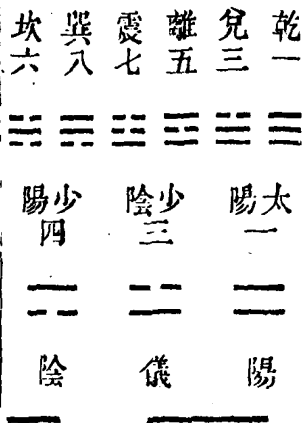 乾一
兌三
離五
震七
巽八
坎六
太陽一
少陰三
少陽四
陽
儀
陰